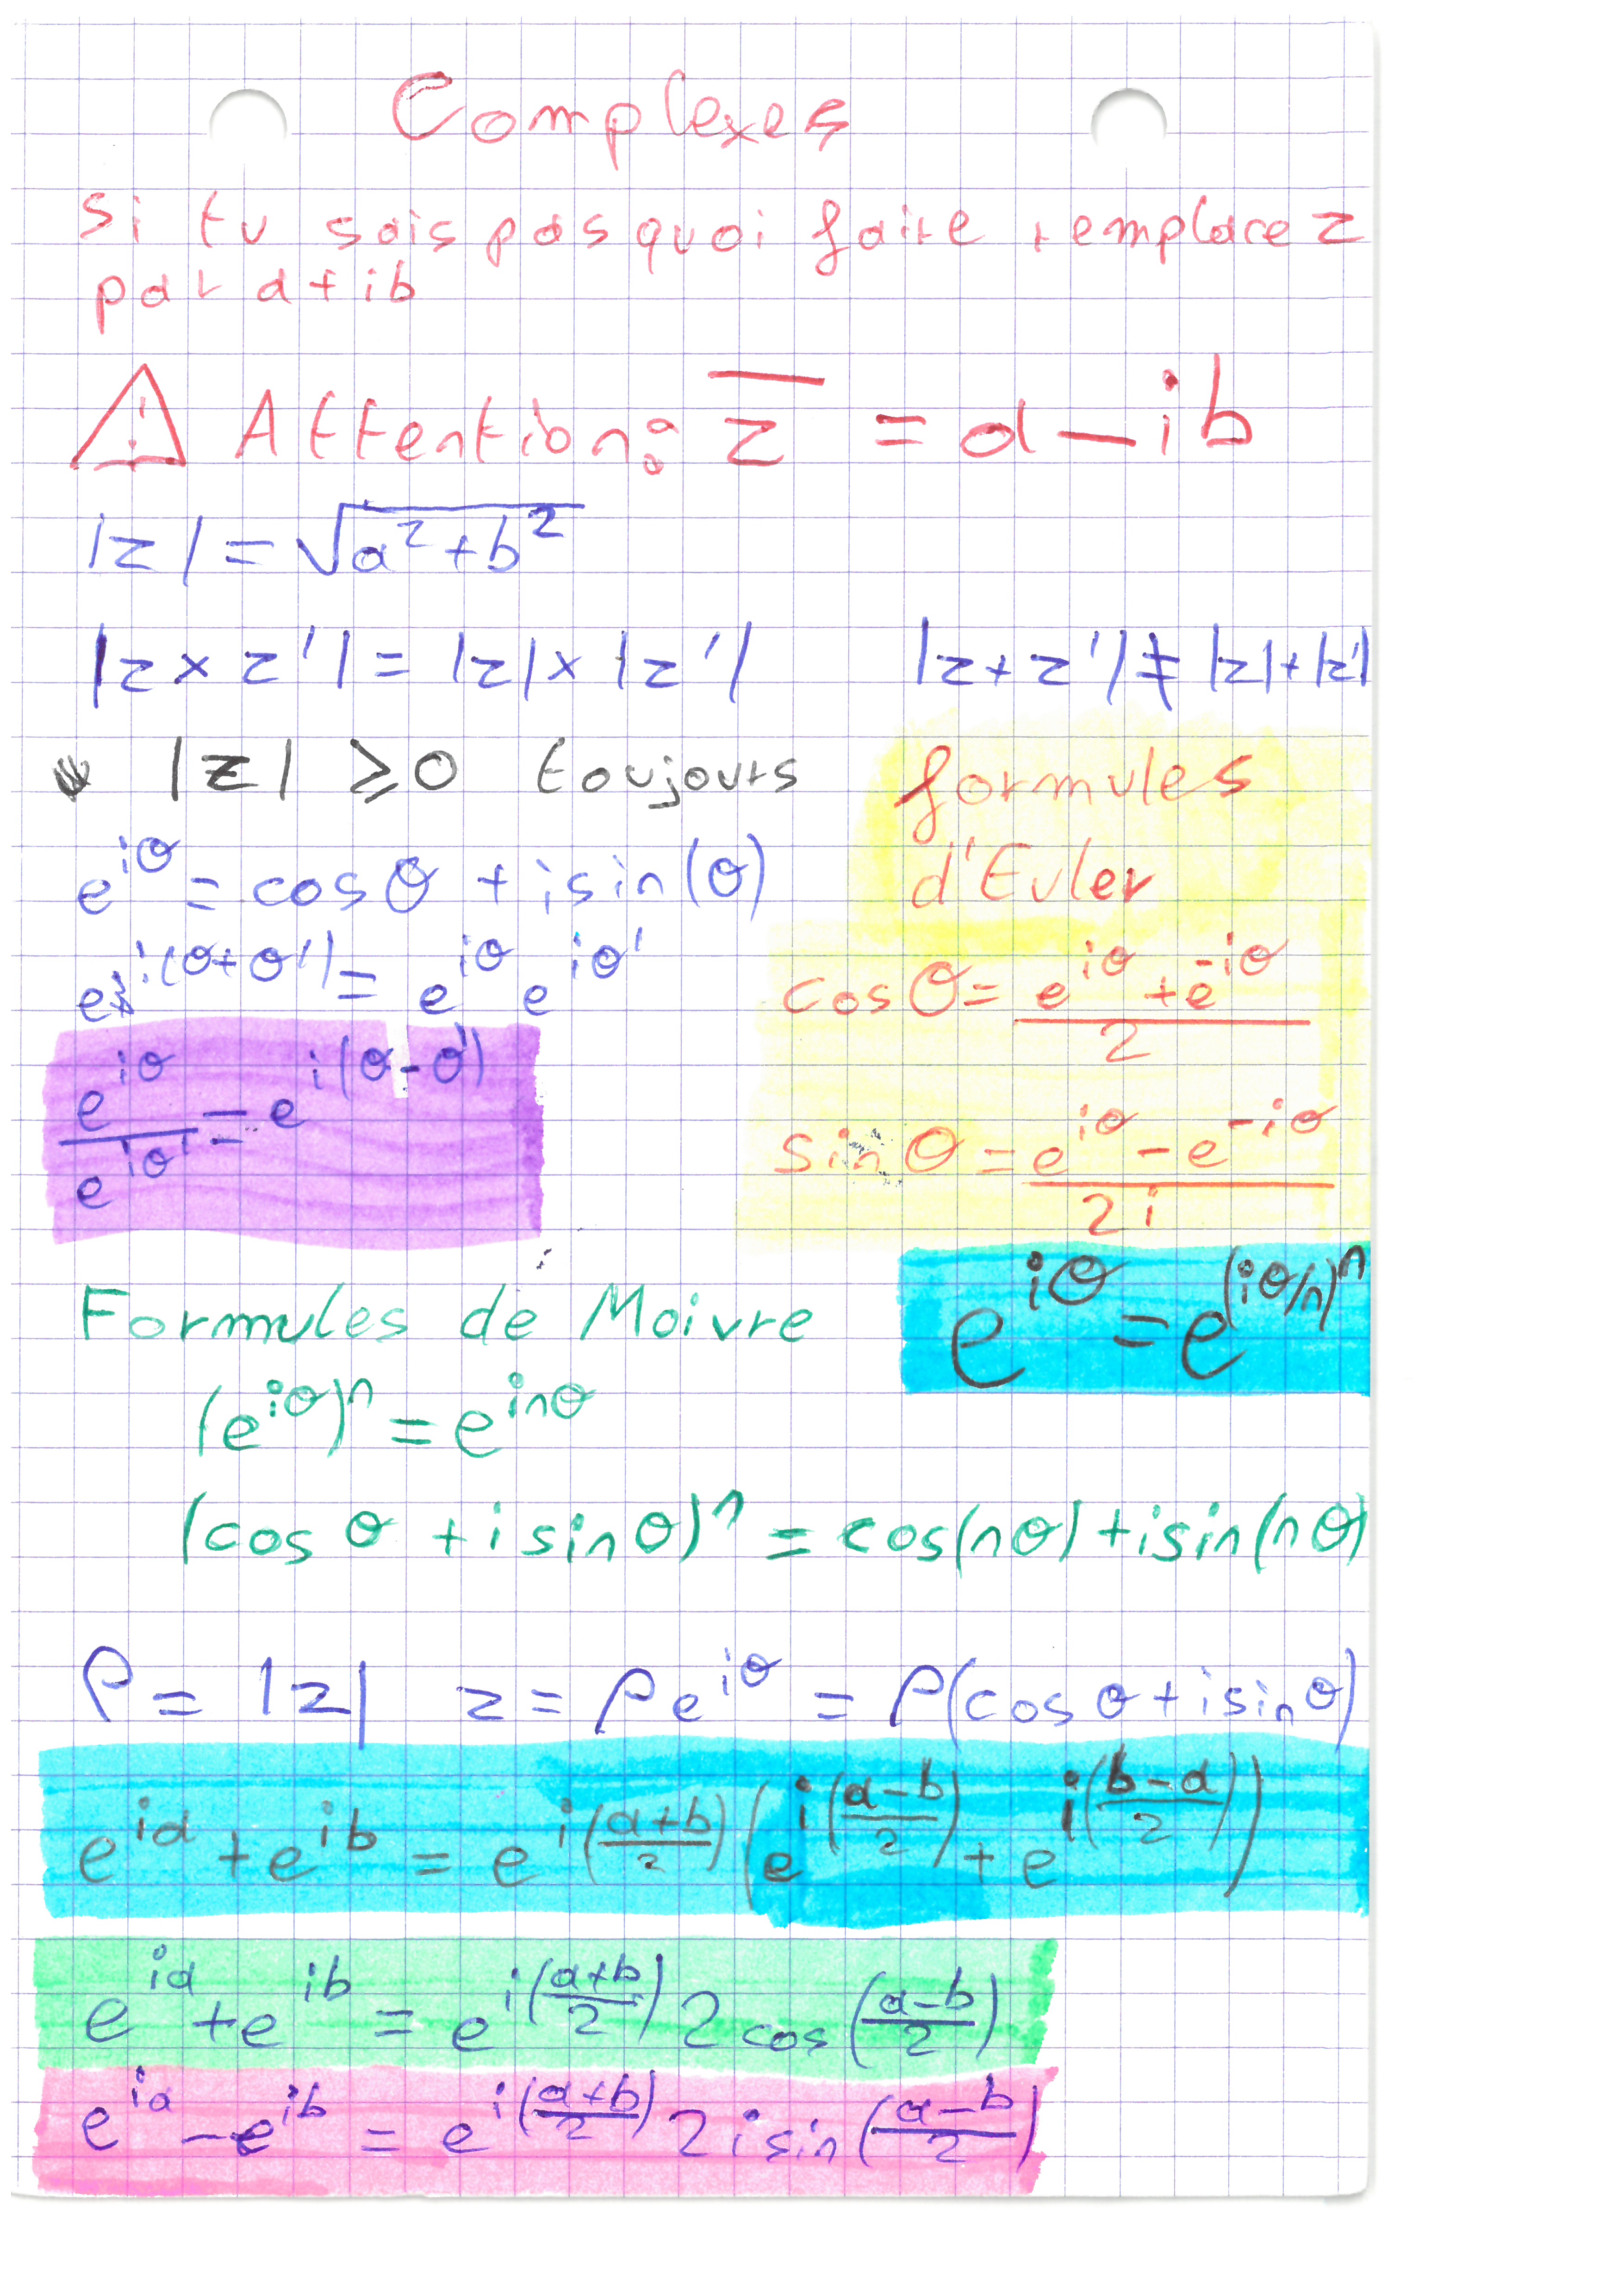 Complexes
Si tu sais pas quoi faire remplace z
par a+ib
⚠ Attention: z̅ = a-ib
|z| = √(a²+b²)
|z × z'| = |z| × |z'|
|z+z'| ≠ |z|+|z'|
|z| ≥ 0 toujours
e^{iθ} = cos θ + i sin(θ)
e^{i(θ+θ')} = e^{iθ} e^{iθ'}
e^{iθ}/e^{iθ'} = e^{i(θ-θ')}
formules
d'Euler
cos θ = (e^{iθ} + e^{-iθ})/2
sin θ = (e^{iθ} - e^{-iθ})/2i
e^{iθ} = e^{(iθ/n)^n}
Formules de Moivre
(e^{iθ})^n = e^{inθ}
(cos θ + i sin θ)^n = cos(nθ) + i sin(nθ)
ρ = |z| z = ρe^{iθ} = ρ(cos θ + i sin θ)
e^{ia} + e^{ib} = e^{i((a+b)/2)} (e^{i((a-b)/2)} + e^{i((b-a)/2)})
e^{ia} + e^{ib} = e^{i((a+b)/2)} 2 cos((a-b)/2)
e^{ia} - e^{ib} = e^{i((a+b)/2)} 2 i sin((a-b)/2)